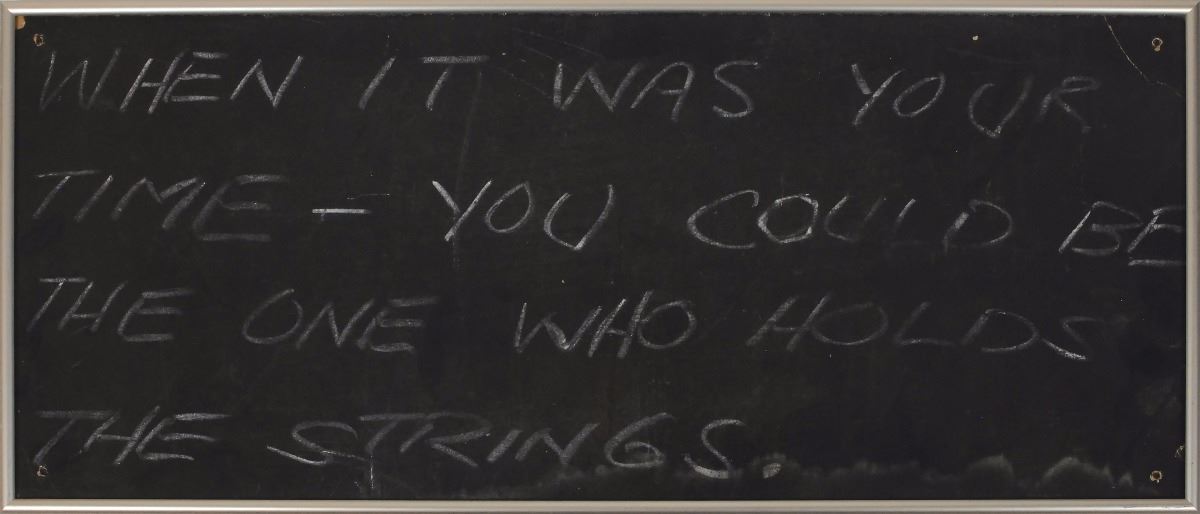 WHEN IT WAS YOUR
TIME – YOU COULD BE
THE ONE WHO HOLDS
THE STRINGS.